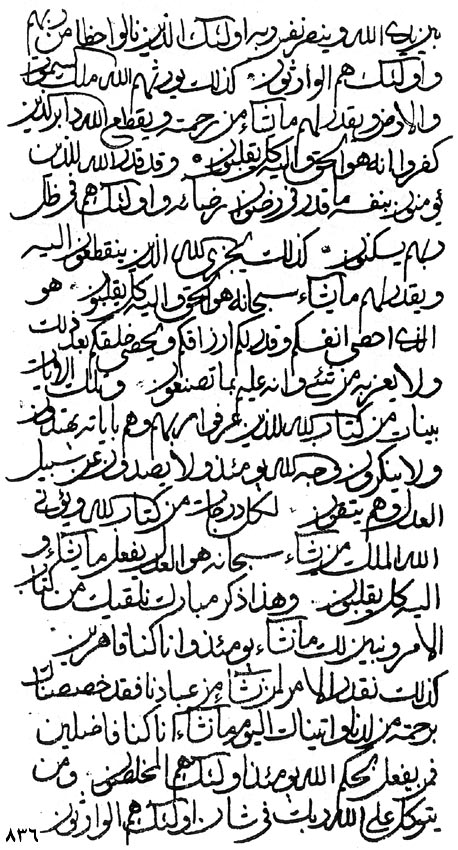 بين يدي الله وينصر نفسه ربه اولئك الذين نالوا حظا من ربهم
و اولئك هم الوارثون كذلك يورثهم الله ملك السموات
والارض ويقدر لهم ما يشاء من رحمته ويقطع الله دابر الذين
كفروا انه هو الحق واليه كل يقلبون وقد قدر الله للذين
يؤمنون بنفسه ما قدر في رضوان رضائه واولئك هم في ظل
ربهم يسكنون كذلك يجزي الله الذين ينقطعون اليه
ويقدر لهم ما يشاء سبحانه هو الحق واليه كل يقلبون هو
الذي احصى انفسكم وقدر لكم ارزاقكم ويحصي خلقكم بعد ذلك
ولا يعزب من شيء وانه عليم بما تصنعون وتلك الايات
بينات من كتاب الله للذين عرفوا ربهم وهم باياته يهتدون
ولا ينكرون وجه الله يومئذ ولا يصدون عن سبيل
العدل وهم يتقون لكل درجات من كتاب الله ويؤتي
الله الملك من يشاء سبحانه هو العدل يفعل ما يشاء و
اليه كل يقلبون وهذا ذكر مبارك نلقيك من كتاب
الامر ونبين لك ما نشاء يومئذ وانا كنا قاهرين
كذلك نقدر الامر لمن نشاء من عبادنا فقد خصصناك
برحمة من لدنا واتيناك اليوم ما نشاء انا كنا فاضلين
فمن يفعل بحكم الله يومئذ اولئك هم المخلصون ومن
يتوكل على الله ربك في شان اولئك هم الوارثون
٨٣٦